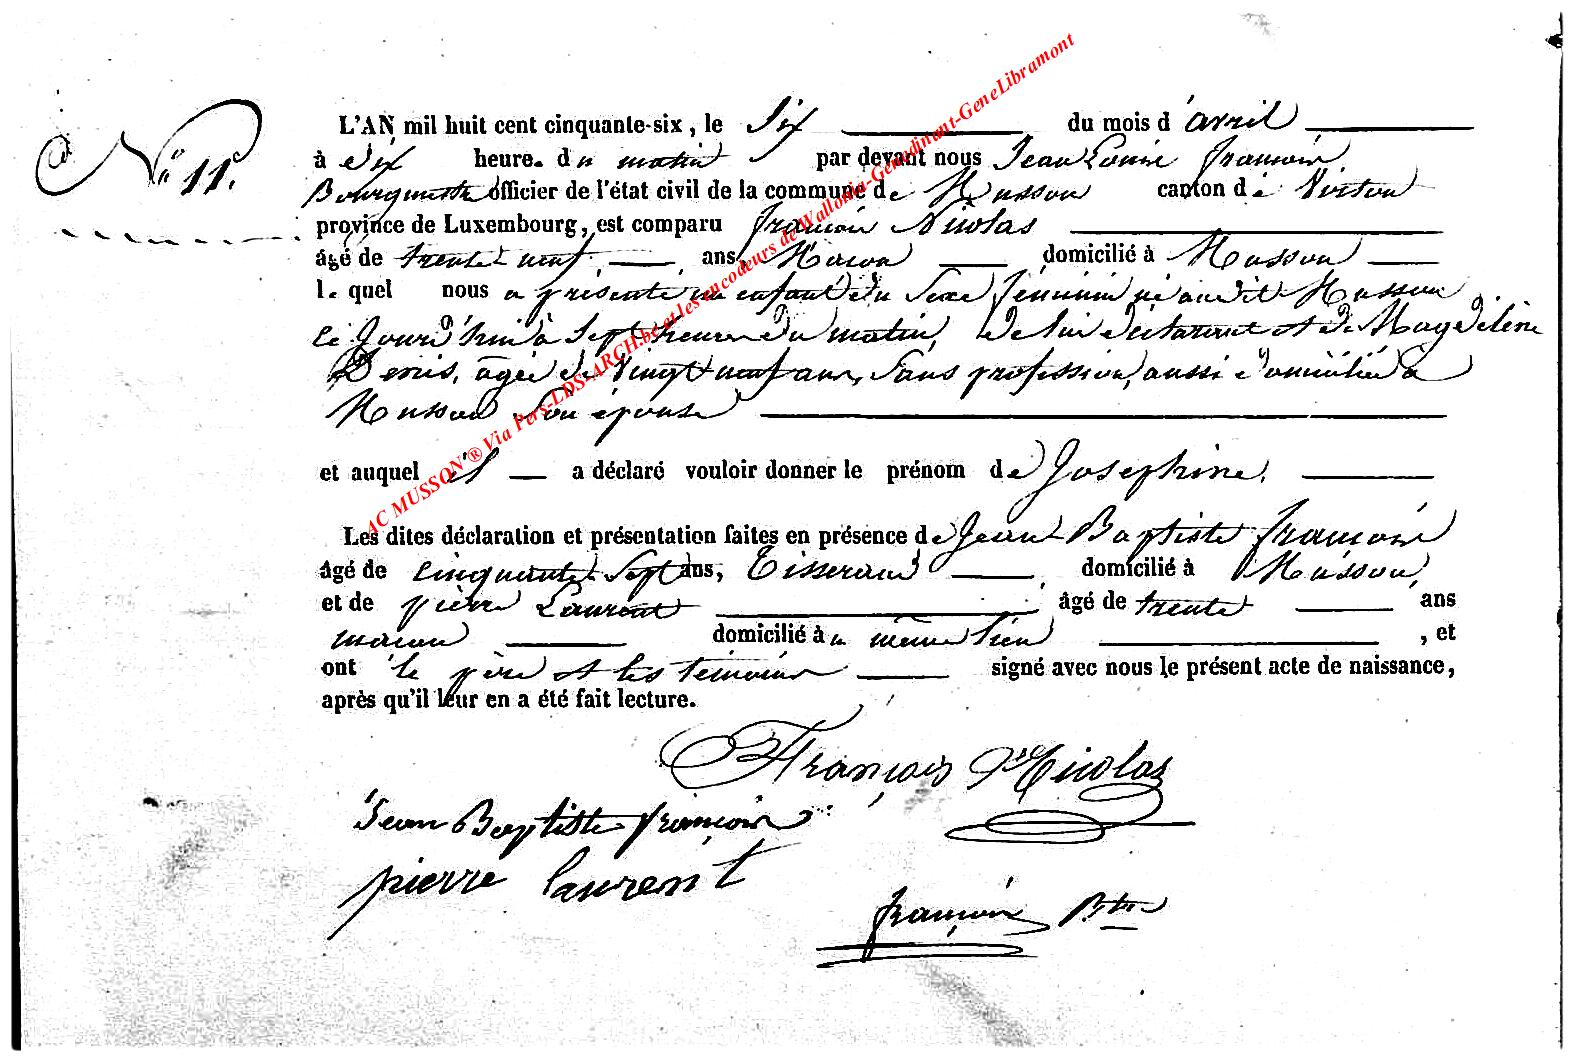 N° 11.
L'AN mil huit cent cinquante-six, le Six du mois d'avril
à dix heure. du matin par devant nous Jean Louis françois
Bourgmestre officier de l'état civil de la commune de Musson canton de Virton
province de Luxembourg, est comparu françois Nicolas
âgé de trente neuf ans, Macon domicilié à Musson
lequel nous a présenté un enfant du Sexe féminin né audit Musson
Ce Jourd'hui à Sept heures du matin, de lui déclarant et de Magdeleine
Denis, agée de Vingt neuf ans, Sans profession, aussi domiciliée à
Musson Son épouse
et auquel il a déclaré vouloir donner le prénom de Josephine.
Les dites déclaration et présentation faites en présence de Jean Baptiste françois
âgé de Cinquante Sept ans, Tisserand domicilié à Musson
et de pierre Laurent âgé de trente ans
macon domicilié au même lieu , et
ont le père et les témoins signé avec nous le présent acte de naissance,
après qu'il leur en a été fait lecture.
François Nicolas
Jean Baptiste françois
pierre laurent
françois Btre
AC MUSSON ® Via Pers-LDS-ARCH.be et les encodeurs de Wallonia-Genedinant-GeneLibramont